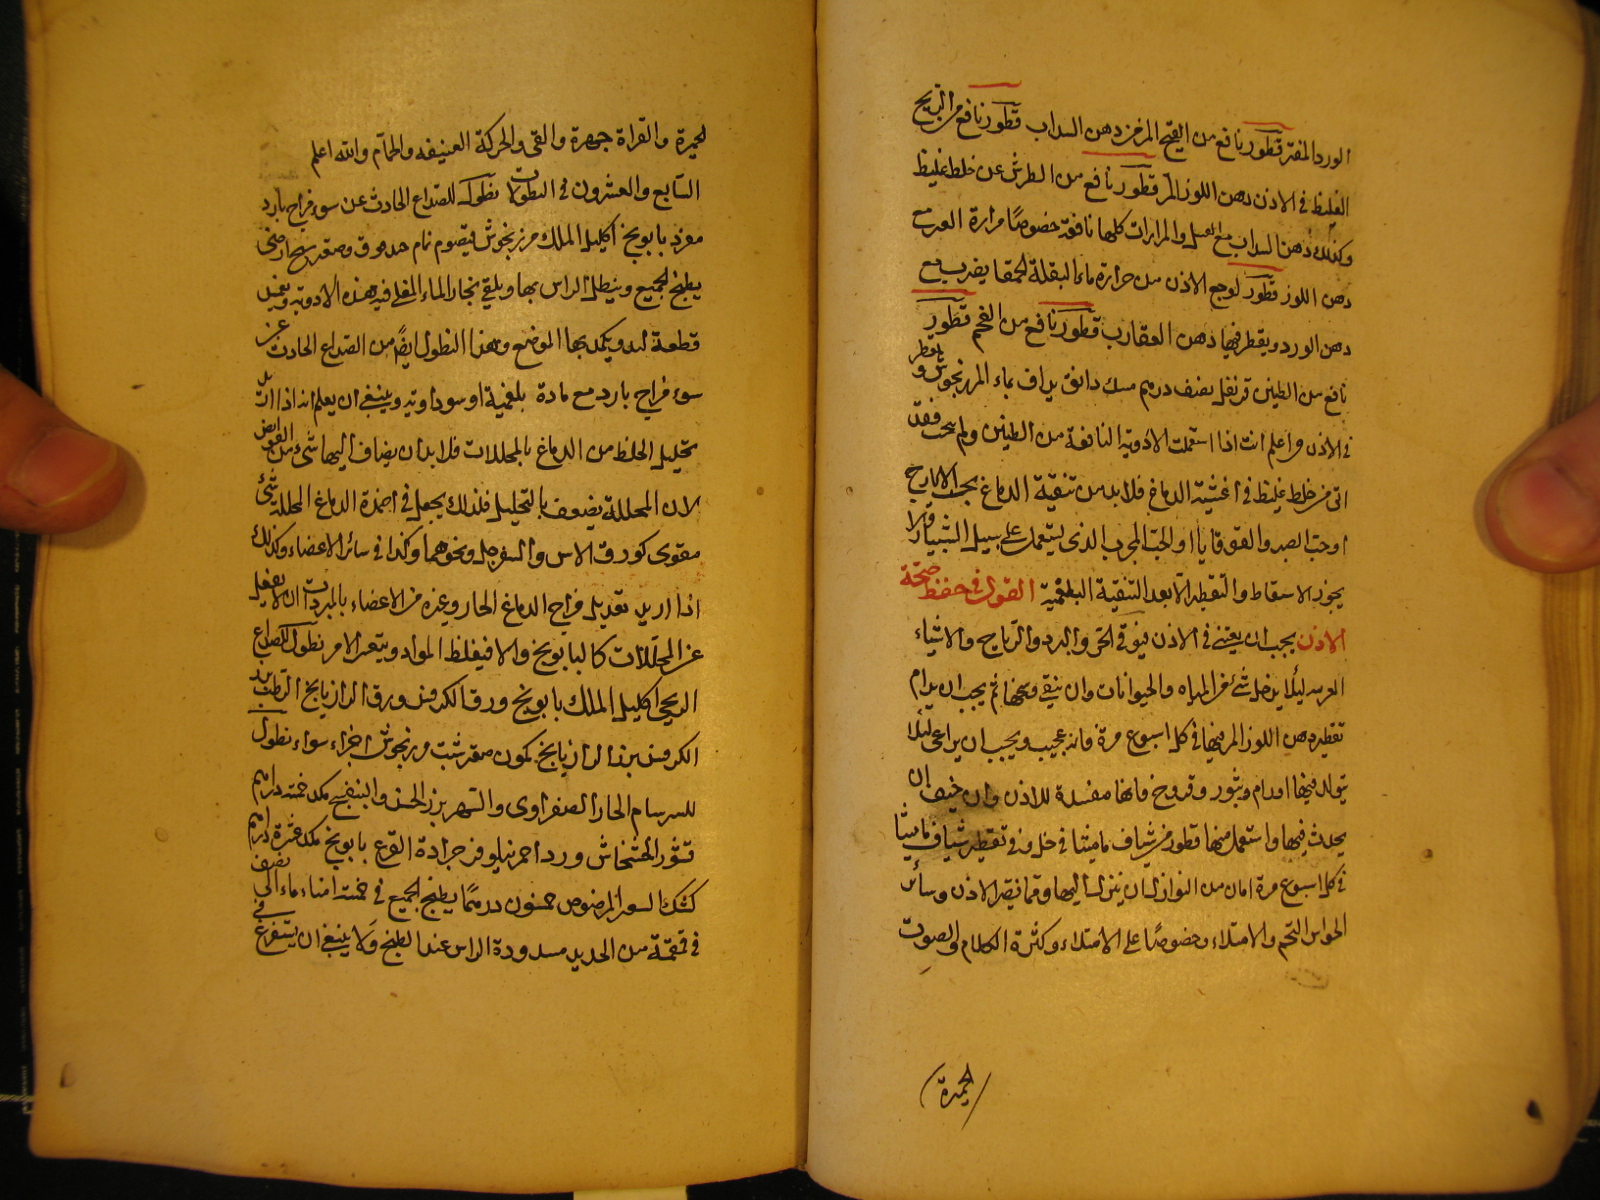 الورد المفتر قطور نافع من القيح المزمن دهن السداب قطور نافع من الريح
الغليظ في الاذن دهن اللوز المر قطور نافع من الطرش عن خلط غليظ
وكذلك دهن السداب مع العسل والمرارات كلها نافعة خصوصًا مرارة العرب مع
دهن اللوز قطور لوجع الاذن من حرارة ماء البقلة الحمقا يضرب مع
دهن الورد ويقطر فيها دهن العقارب قطور نافع من الفخم قطور
نافع من الطنين قرنفل نصف درهم مسك دانق يداف بماء المرزنجوش ويقطر
في الاذن واعلم انك اذا استعملت الادوية النافعة من الطنين ولم تنجح فقد
اتى من خلط غليظ في اغشية الدماغ فلا بد من تنقية الدماغ بحب الايارج
او حب الصبر والقوقايا او الحب المجرب الذى يستعمل على سبيل الشبيار ولا
يجوز الاسقاط والتقطير الا بعد التنقية البلغمية القول في حفظ صحة
الاذن يجب ان يعتنى في الاذن فيوقى الحر والبرد والرياح والاشياء
الغريبه لئلا يدخل شئ من المياه والحيوانات وان ينقى وسخها ثم يجب ان يدام
تقطير دهن اللوز المر فيها في كل اسبوع مرة فانه عجيب ويجب ان يراعى لئلا
يتولد فيها اورام وبثور وقروح فانها مفسدة للاذن وان خيف ان
يحدث فيها واستعمل فيها قطور من شياف ماميثا في خل وفى تقطير شياف ماميثا
في كل اسبوع مرة امان من النوازل ان ينزل اليها ومما يضر الاذن وسائر
الحواس التخم والامتلاء وخصوصًا على الامتلاء وكثرة الكلام والصوت
الجهيرة
الجهيرة والقراة جهرة والقى والحركة العنيفه والحمام والله اعلم
السابع والعشرون في النطولات نطول للصداع الحادث عن سوء مزاج بارد
مفرد بابونج اكليل الملك مرزنجوش قيصوم نمام صعتر
يطبخ الجميع وينطل الراس بها ويلقى بخار الماء المغلى فيه هذه الادوية ويغمس
قطعة لبد ويكمد بها الموضع وهذا النطول ايضًا من الصداع الحادث عن
سوء مزاج بارد مع مادة بلغمية او سوداوية وينبغى ان يعلم انه اذا اريد
تحليل الخلط من الدماغ بالمحللات فلا بد ان يضاف اليها شئ من القوابض
لان المحللة يضعف بالتحليل فلذلك يجعل في اضمدة الدماغ المحللة شئ
مقوى كورق الاس والسفرجل ونحوهما وكذا في سائر الاعضاء وكذلك
اذا اريد تعديل مزاج الدماغ الحار وغيره من الاعضاء بالمبردات ان لا يغفل
عن المحللات كالبابونج والا فيغلظ المواد ويتعسر الامر نطول للصداع
الريحى اكليل الملك بابونج ورق الكرفس ورق الرازيانج الرطب بزر
الكرفس بزر الرازيانج كمون صعتر شبت مرزنجوش اجزاء سواء نطول
للسرسام الحار الصفراوى والسهر بزر الخس والبنفسج مكد خمسة دراهم
قشور الخشخاش ورد احمر نيلوفر جرادة القرع بابونج مكد عشرة دراهم
كشك الشعير المرضوض خمسون درهمًا يطبخ الجميع في خمسة امناء ماء الى نصف
في قمقمة من الحديد مسدودة الراس عند الطبخ ولا ينبغى ان يستفرغ في